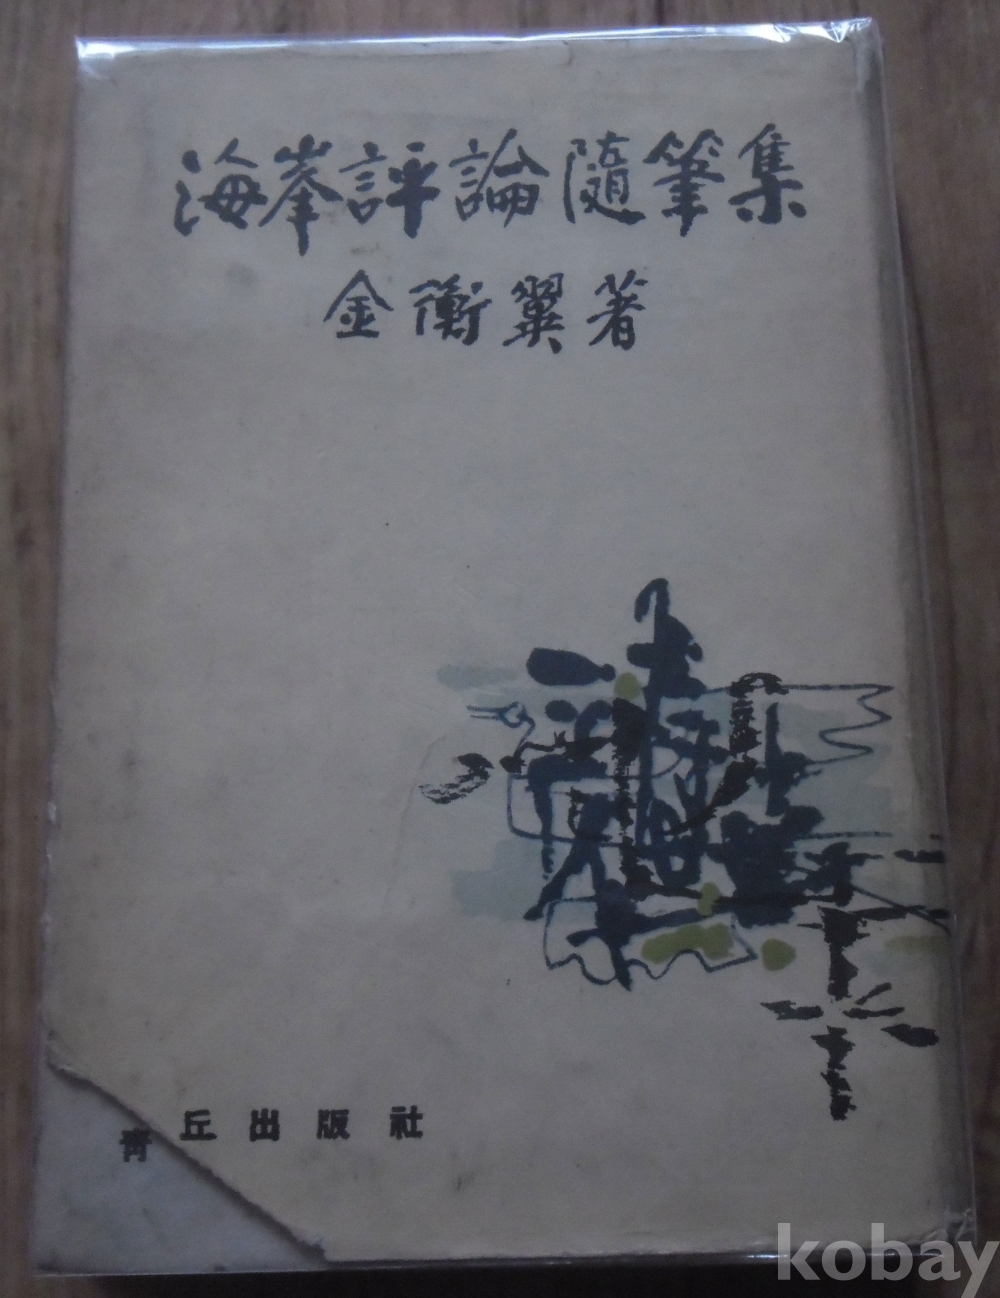 海峯評論隨筆集
金衡翼著
靑丘出版社
kobay